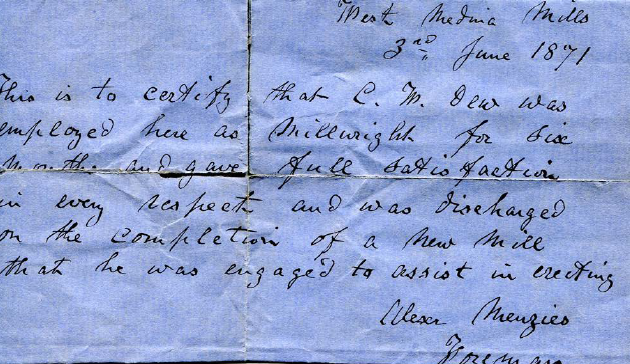 West Medina Mills
3rd June 1871
This is to certify that C. M. Dew was
employed here as Millwright for six
months and gave full satisfaction
in every respect and was discharged
on the completion of a new Mill
that he was engaged to assist in erecting
Alexr Menzies
Foreman